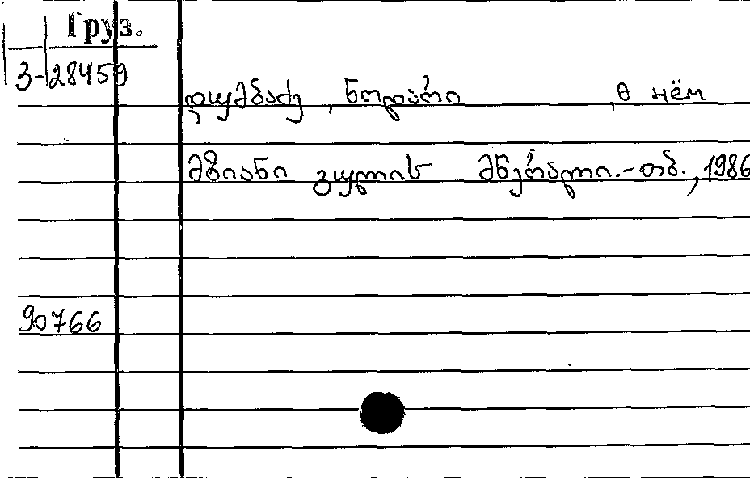 Груз.
3-28459
დუმბაძე, ნოდარი, о нём
მზიანი გულის მწერალი.-თბ., 1986
90766